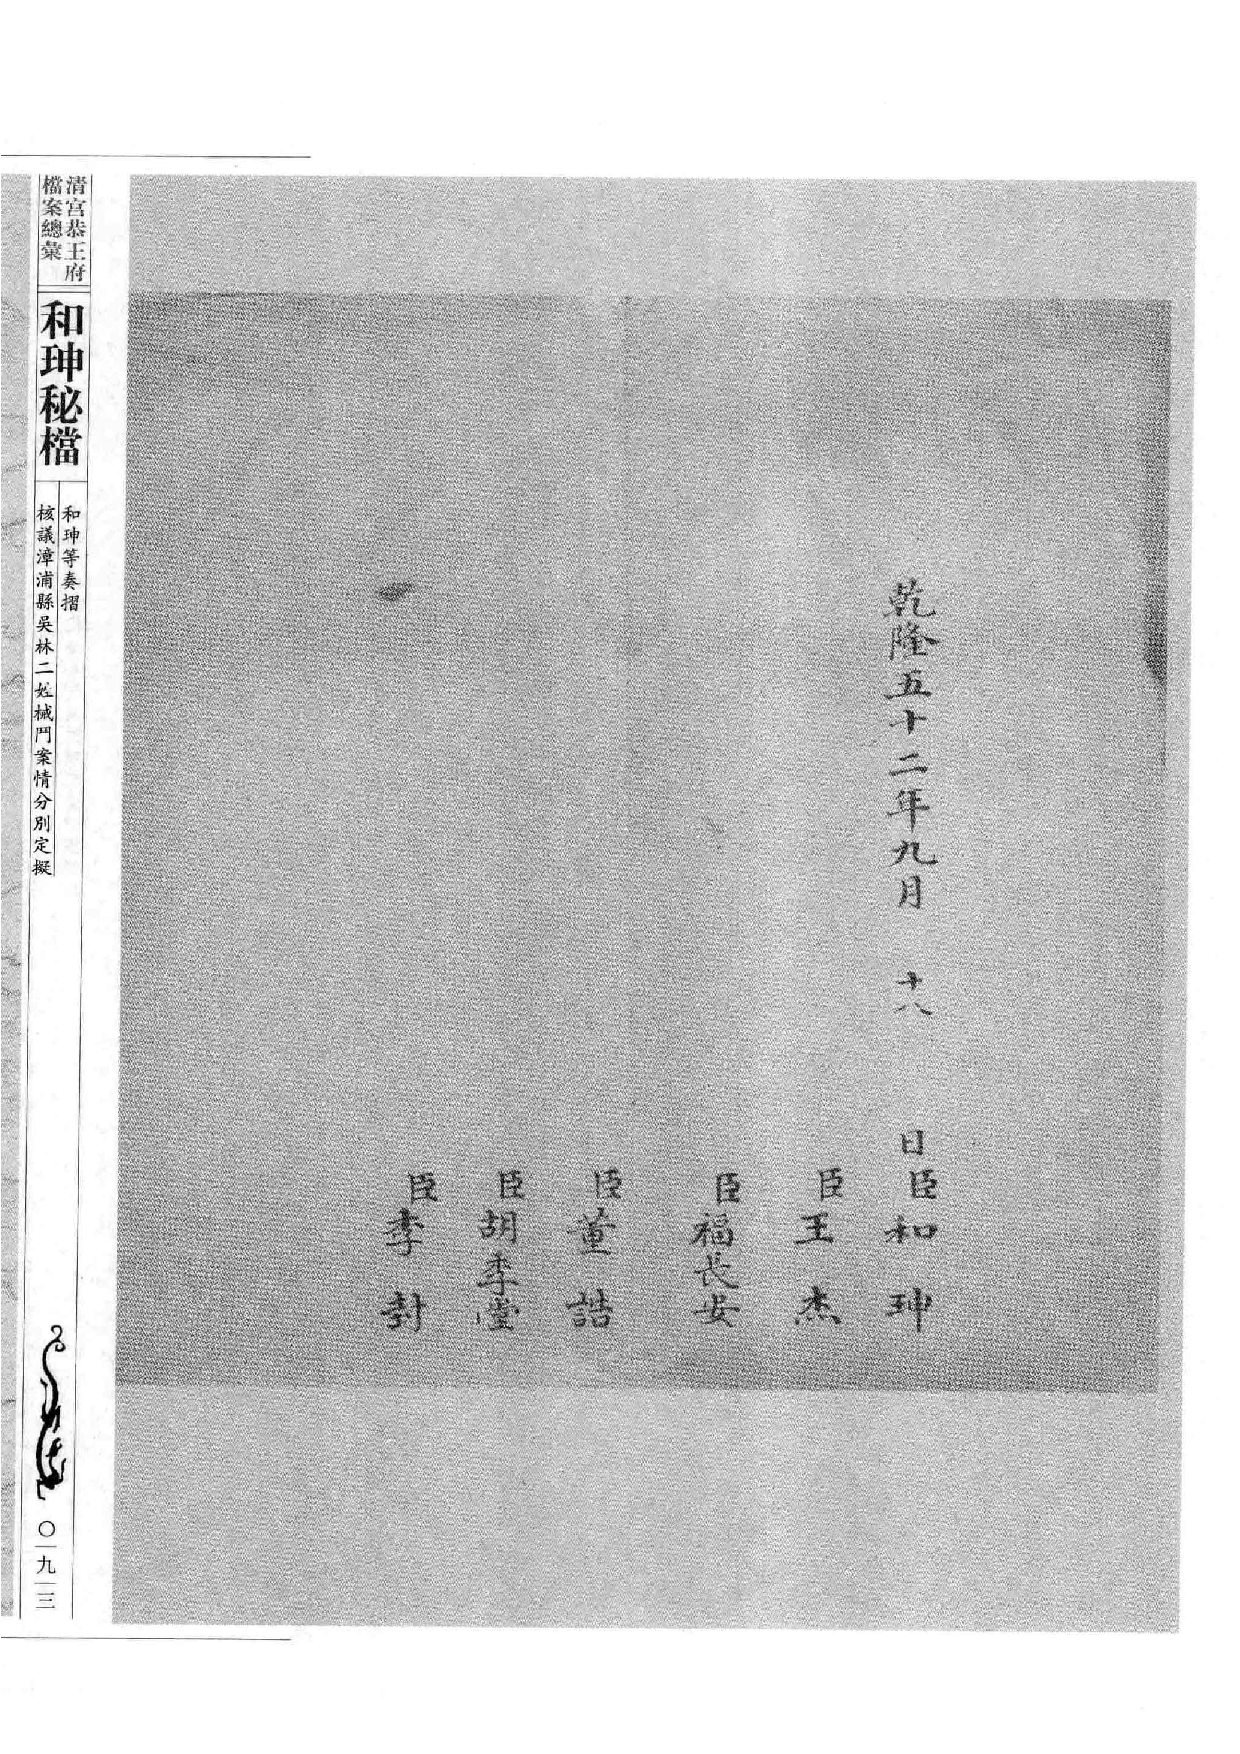 乾隆五十二年九月 十八 日臣和珅
臣王杰
臣福長安
臣董誥
臣胡季堂
臣李封
清宮恭王府
檔案總彙
和珅秘檔
和珅等奏摺
核議漳浦縣吳林二姓械鬥案情分別定擬
〇一九一三